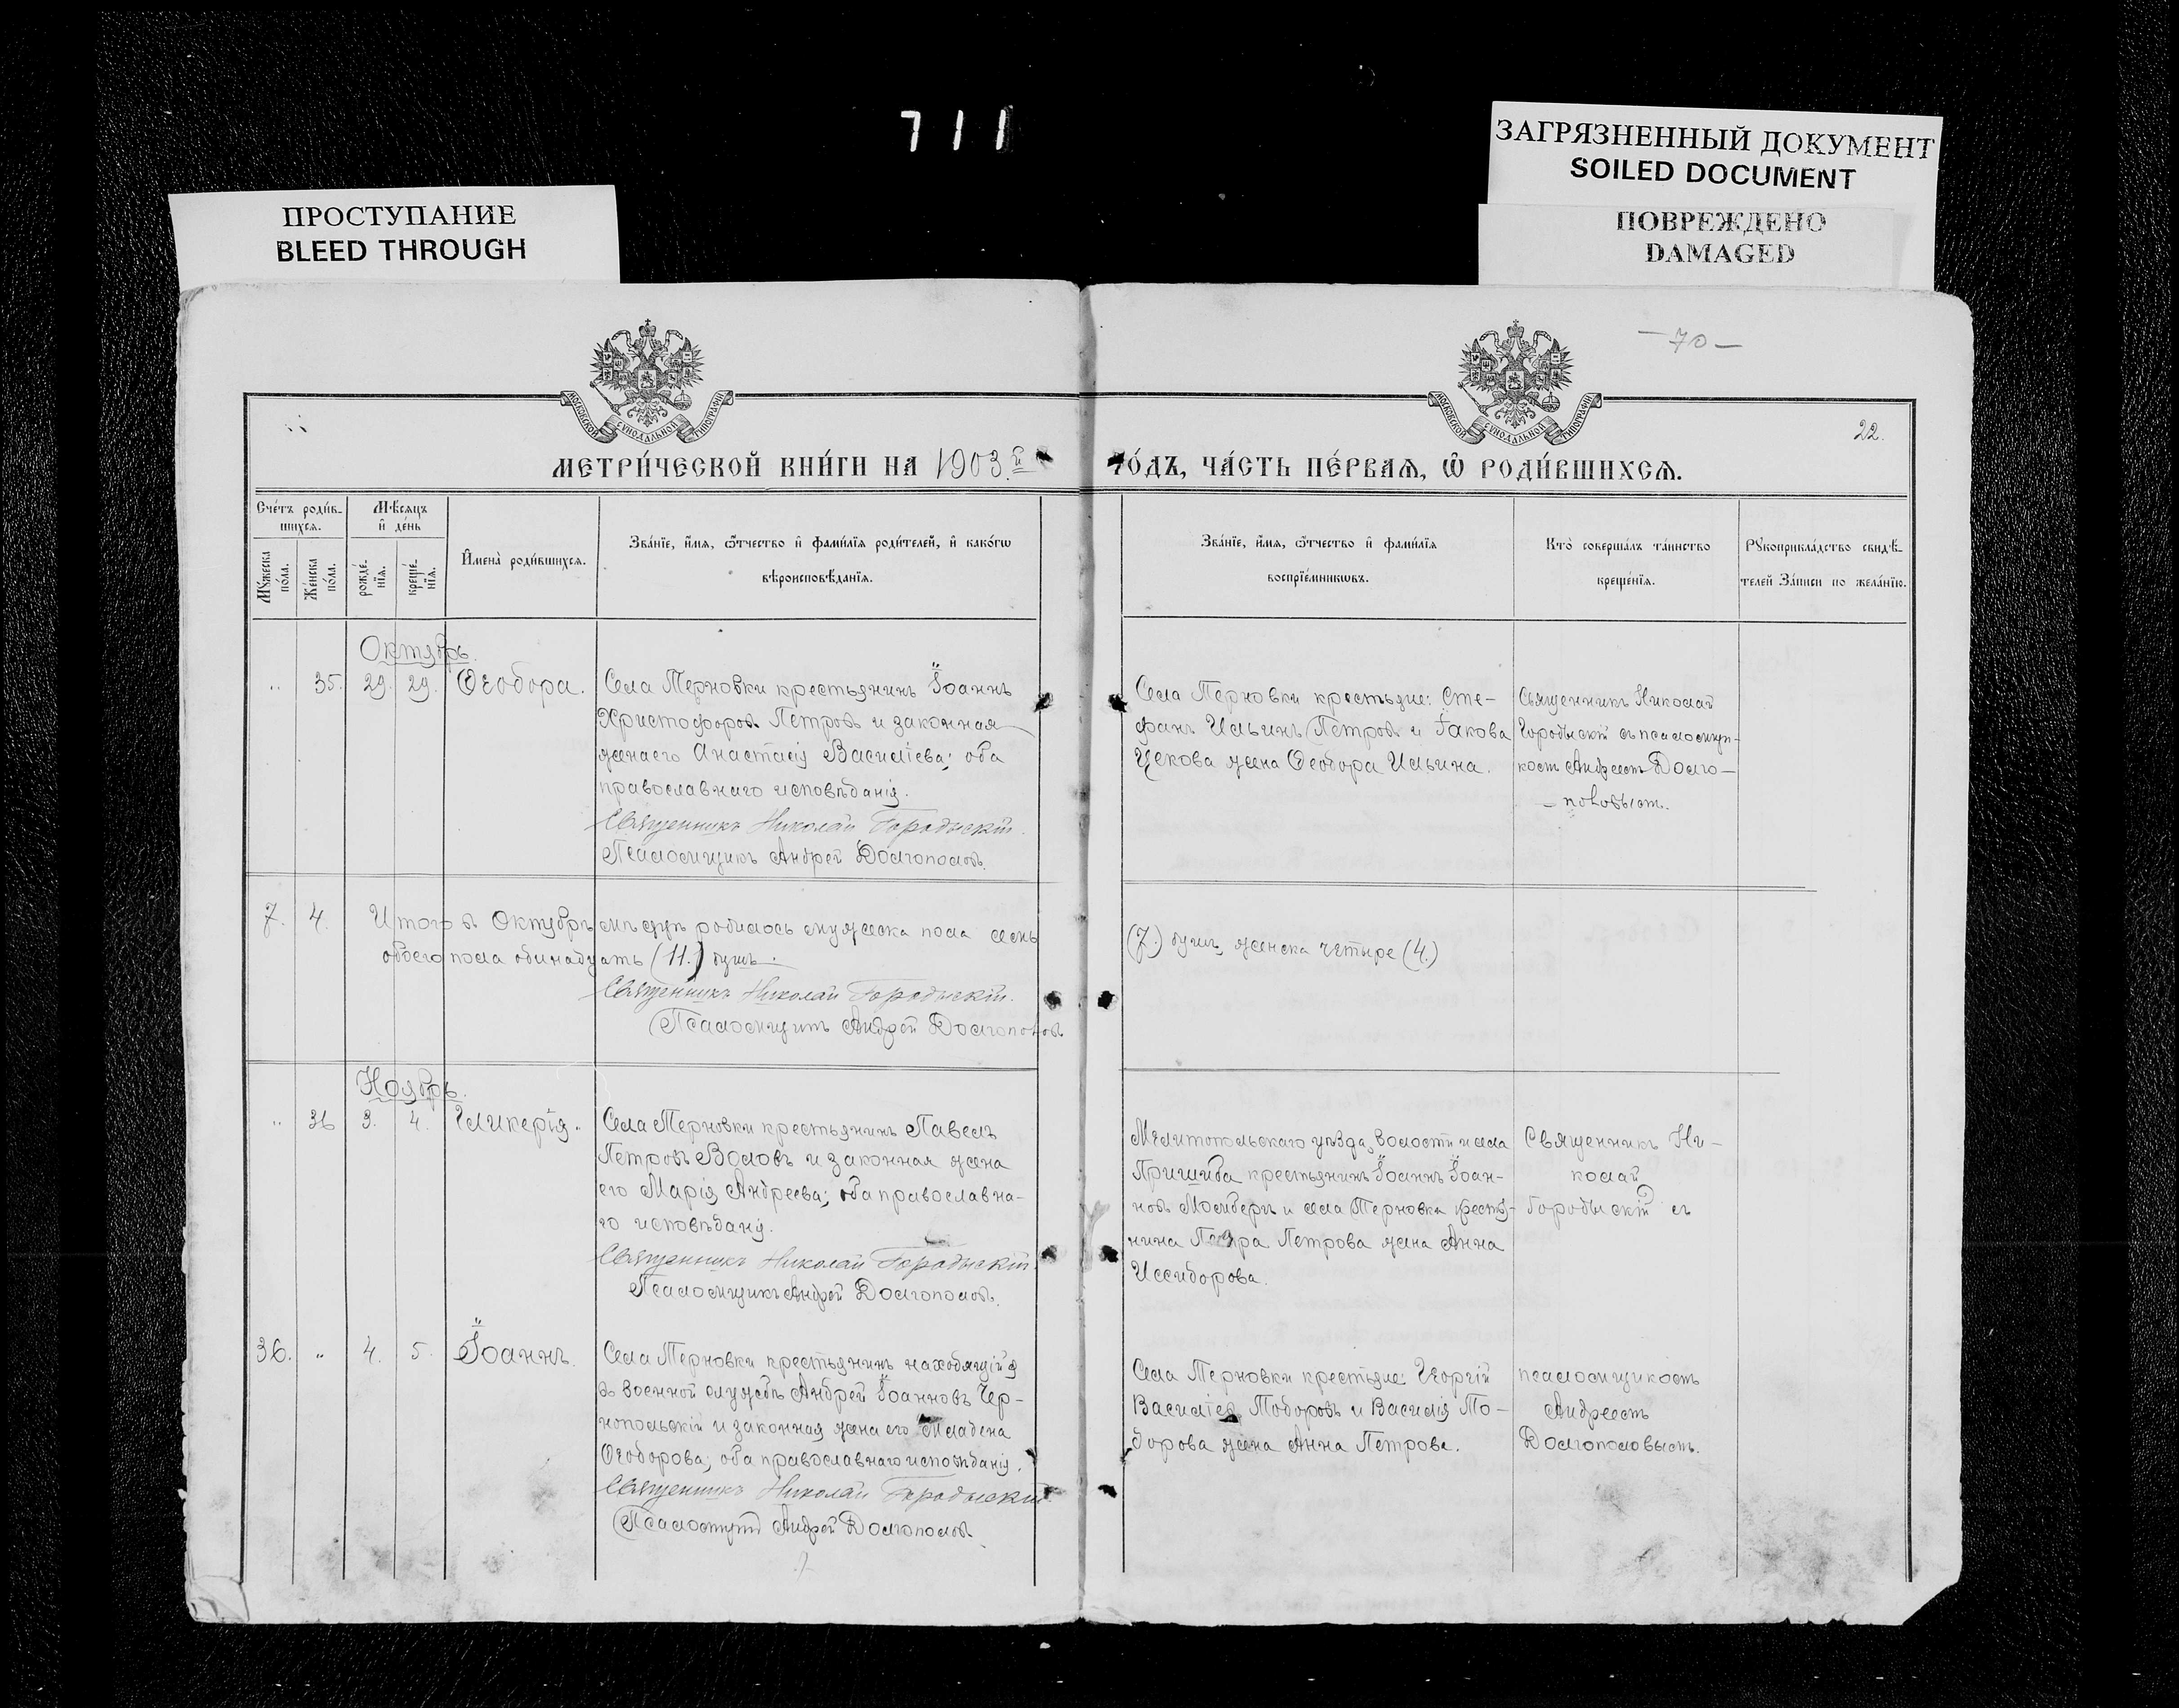 711
ЗАГРЯЗНЕННЫЙ ДОКУМЕНТ
SOILED DOCUMENT
ПОВРЕЖДЕНО
DAMAGED
ПРОСТУПАНИЕ
BLEED THROUGH
— 70 —
22.
МОСКОВСКОЙ СѴНОДАЛЬНОЙ ТИПОГРАФІИ
МОСКОВСКОЙ СѴНОДАЛЬНОЙ ТИПОГРАФІИ
МЕТРИ́ЧЕСКОЙ КНИ́ГИ НА 1903.й ГО́ДЪ, ЧА́СТЬ ПЕ́РВАѦ, Ѡ҆ РОДИ́ВШИХСѦ.
Сче́тъ роди́в-
шихсѧ.
Мꙋ́жеска по́ла.
Же́нска по́ла.
Мѣ́сѧцъ
и҆ де́нь
рожде́нїѧ.
креще́нїѧ.
И҆мена̀ роди́вшихсѧ.
Зва́нїе, и҆́мѧ, ѻ҆́тчество и҆ фами́лїѧ роди́телей, и҆ како́гѡ
вѣроисповѣ́данїѧ.
Зва́нїе, и҆́мѧ, ѻ҆́тчество и҆ фами́лїѧ
воспрїе́мникѡвъ.
Кто̀ соверша́лъ та́инство
креще́нїѧ.
Рꙋкоприкла́дство свидѣ́-
телей За́писи по жела́нїю.
Октябрь.
„ 35. 29. 29. Ѳеодора.
Села Терновки крестьянинъ Іоаннъ
Христофоровъ Петровъ и законная
жена его Анастасія Василіева; оба
православнаго исповѣданія.
Священникъ Николай Городыскій.
Псаломщикъ Андрей Долгополовъ.
Села Терновки крестьяне: Сте-
фанъ Ильинъ Петровъ и Іакова
Цекова жена Ѳеодора Ильина.
Священникъ Николай
Городыскій съ псаломщи-
комъ Андреемъ Долго-
— половымъ.
7. 4. Итого въ Октябрѣ мѣсяцѣ родилось мужеска пола семь
(7.) душъ, женска четыре (4.)
обоего пола одинадцать (11.) душъ.
Священникъ Николай Городыскій.
Псаломщикъ Андрей Долгополовъ
Ноябрь.
„ 36 3. 4. Гликерія.
Села Терновки крестьянинъ Павелъ
Петровъ Воловъ и законная жена
его Марія Андреева; оба православна-
го исповѣданія.
Священникъ Николай Городыскій.
Псаломщикъ Андрей Долгополовъ.
Мелитопольскаго уѣзда, волости и села
Пришиба крестьянинъ Іоаннъ Іоан-
новъ и села Терновка крестья-
нина Петра Петрова жена Анна
Иссидорова.
Священникъ Ни-
колай
Городыскій съ
36. „ 4. 5. Іоаннъ.
Села Терновки крестьянинъ находящійся
въ военной службѣ Андрей Іоанновъ Чер-
нопольскій и законная жена его Младена
Ѳеодорова; оба православнаго исповѣданія.
Священникъ Николай Городыскій
Псаломщикъ Андрей Долгополовъ.
Села Терновки крестьяне: Георгій
Василіевъ Тодоровъ и Василія То-
дорова жена Анна Петрова.
псаломщикомъ
Андреемъ
Долгополовымъ.